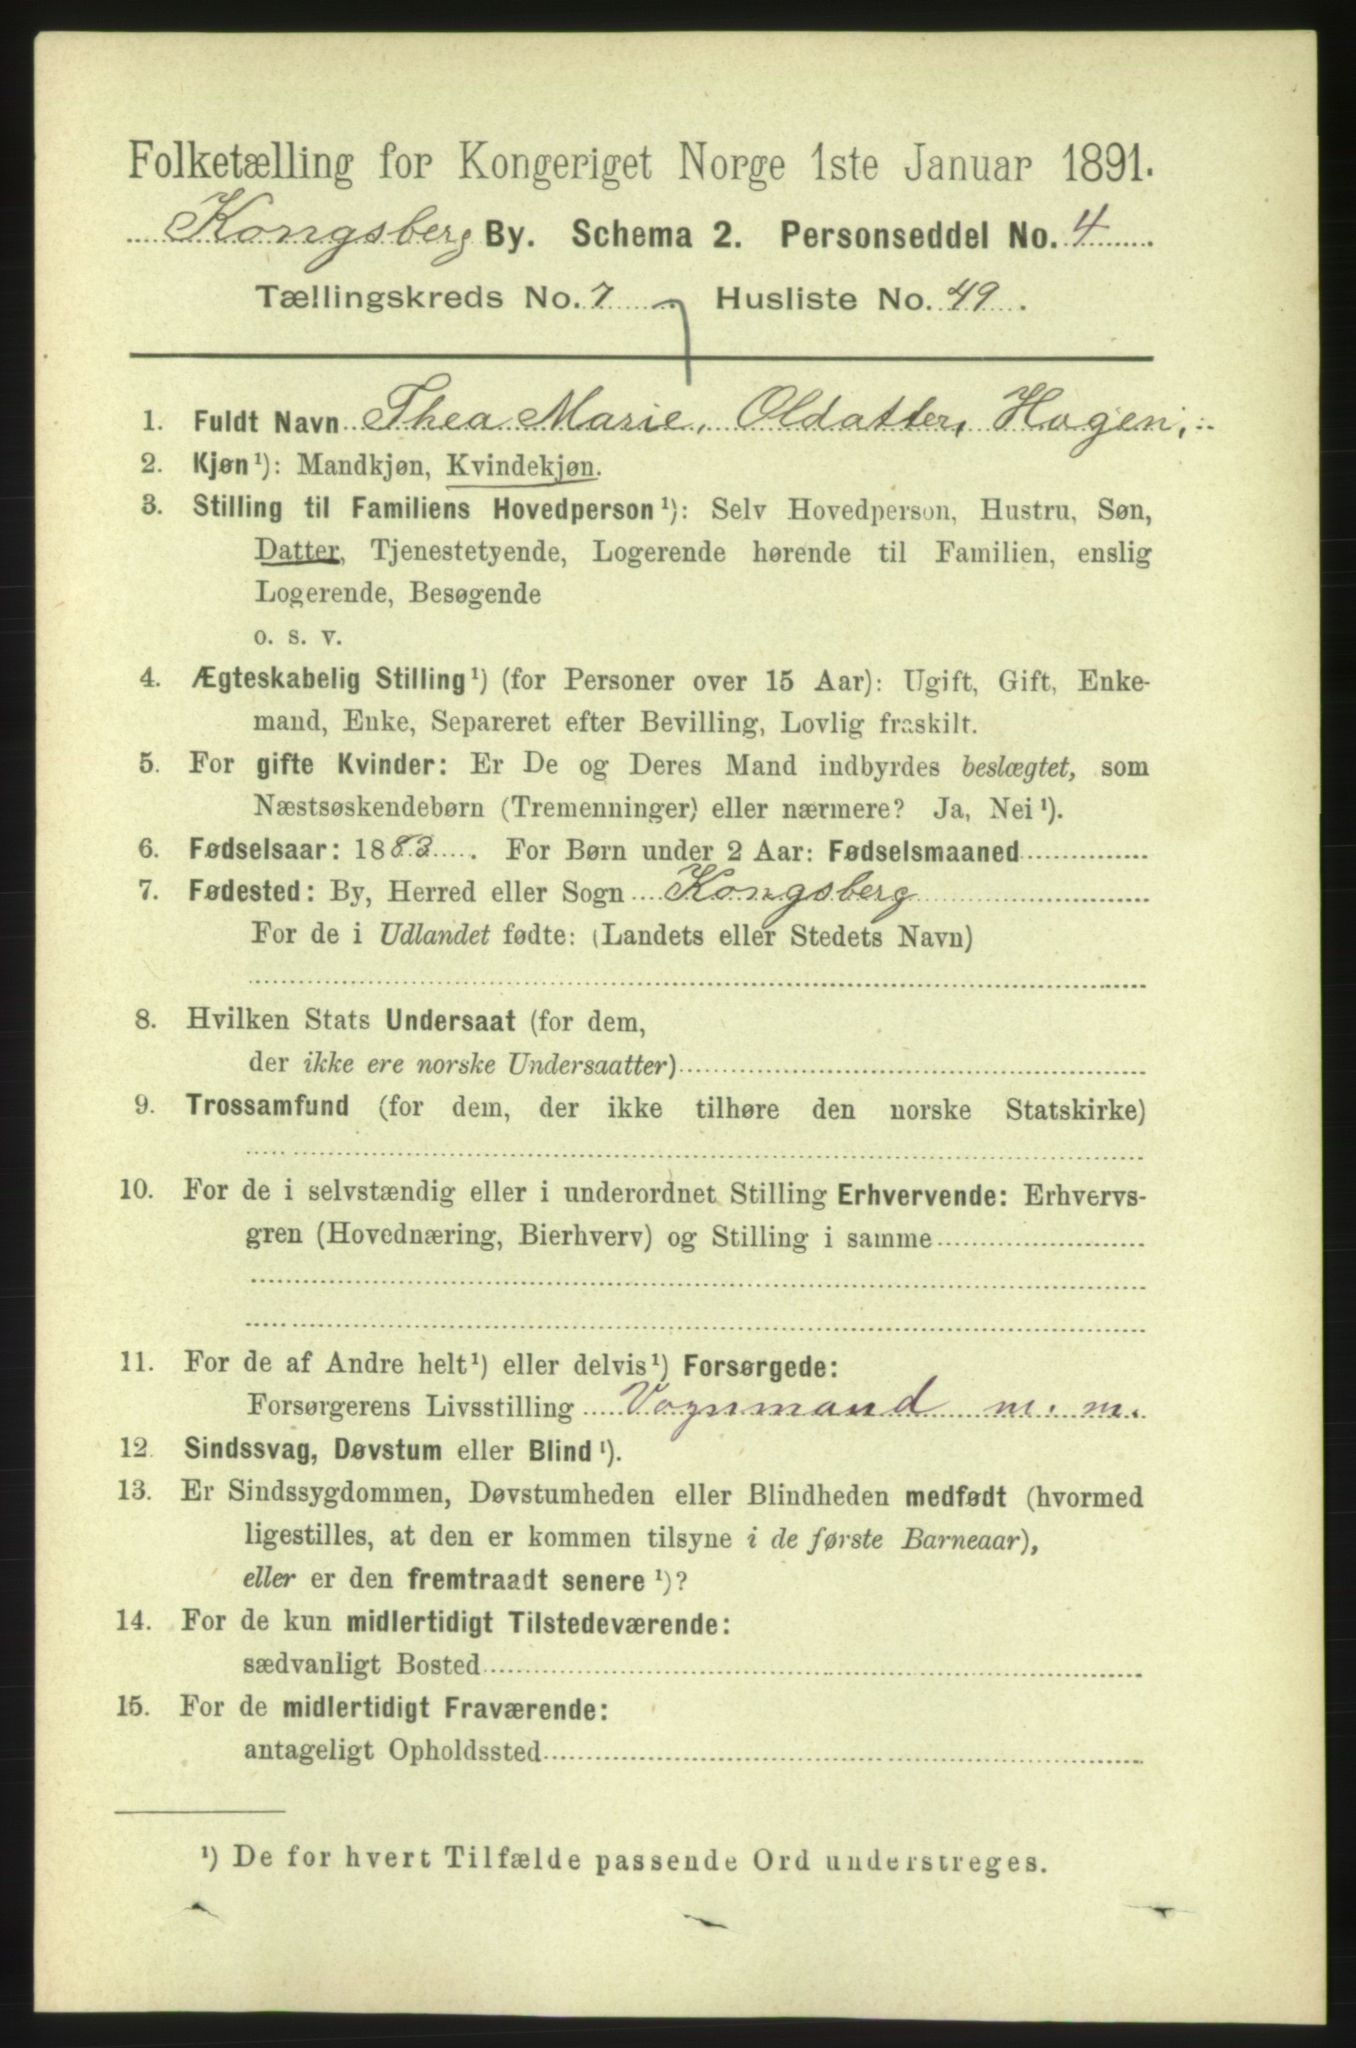 Folketælling for Kongeriget Norge 1ste Januar 1891.
Kongsberg By. Schema 2. Personseddel No. 4
Tællingskreds No. 7 Husliste No. 49.
1. Fuldt Navn Thea Marie, Oldatter, Hagen,
2. Kjøn¹): Mandkjøn, Kvindekjøn.
3. Stilling til Familiens Hovedperson¹): Selv Hovedperson, Hustru, Søn,
Datter, Tjenestetyende, Logerende hørende til Familien, enslig
Logerende, Besøgende
o. s. v.
4. Ægteskabelig Stilling¹) (for Personer over 15 Aar): Ugift, Gift, Enke-
mand, Enke, Separeret efter Bevilling, Lovlig fraskilt.
5. For gifte Kvinder: Er De og Deres Mand indbyrdes beslægtet, som
Næstsøskendebørn (Tremenninger) eller nærmere? Ja, Nei¹).
6. Fødselsaar: 1883. For Børn under 2 Aar: Fødselsmaaned
7. Fødested: By, Herred eller Sogn Kongsberg
For de i Udlandet fødte: (Landets eller Stedets Navn)
8. Hvilken Stats Undersaat (for dem,
der ikke ere norske Undersaatter)
9. Trossamfund (for dem, der ikke tilhøre den norske Statskirke)
10. For de i selvstændig eller i underordnet Stilling Erhvervende: Erhvervs-
gren (Hovednæring, Bierhverv) og Stilling i samme
11. For de af Andre helt¹) eller delvis¹) Forsørgede:
Forsørgerens Livsstilling Vognmand m. m.
12. Sindssvag, Døvstum eller Blind¹).
13. Er Sindssygdommen, Døvstumheden eller Blindheden medfødt (hvormed
ligestilles, at den er kommen tilsyne i de første Barneaar),
eller er den fremtraadt senere¹)?
14. For de kun midlertidigt Tilstedeværende:
sædvanligt Bosted
15. For de midlertidigt Fraværende:
antageligt Opholdssted
¹) De for hvert Tilfælde passende Ord understreges.